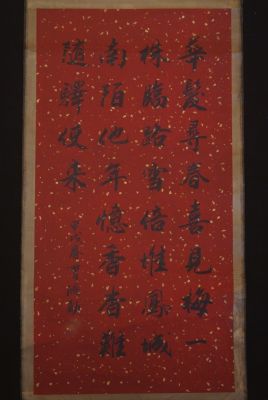 華髮尋春喜見梅一
株臨路雪倍堆鳳城
南陌他年憶香杳難
隨驛使來